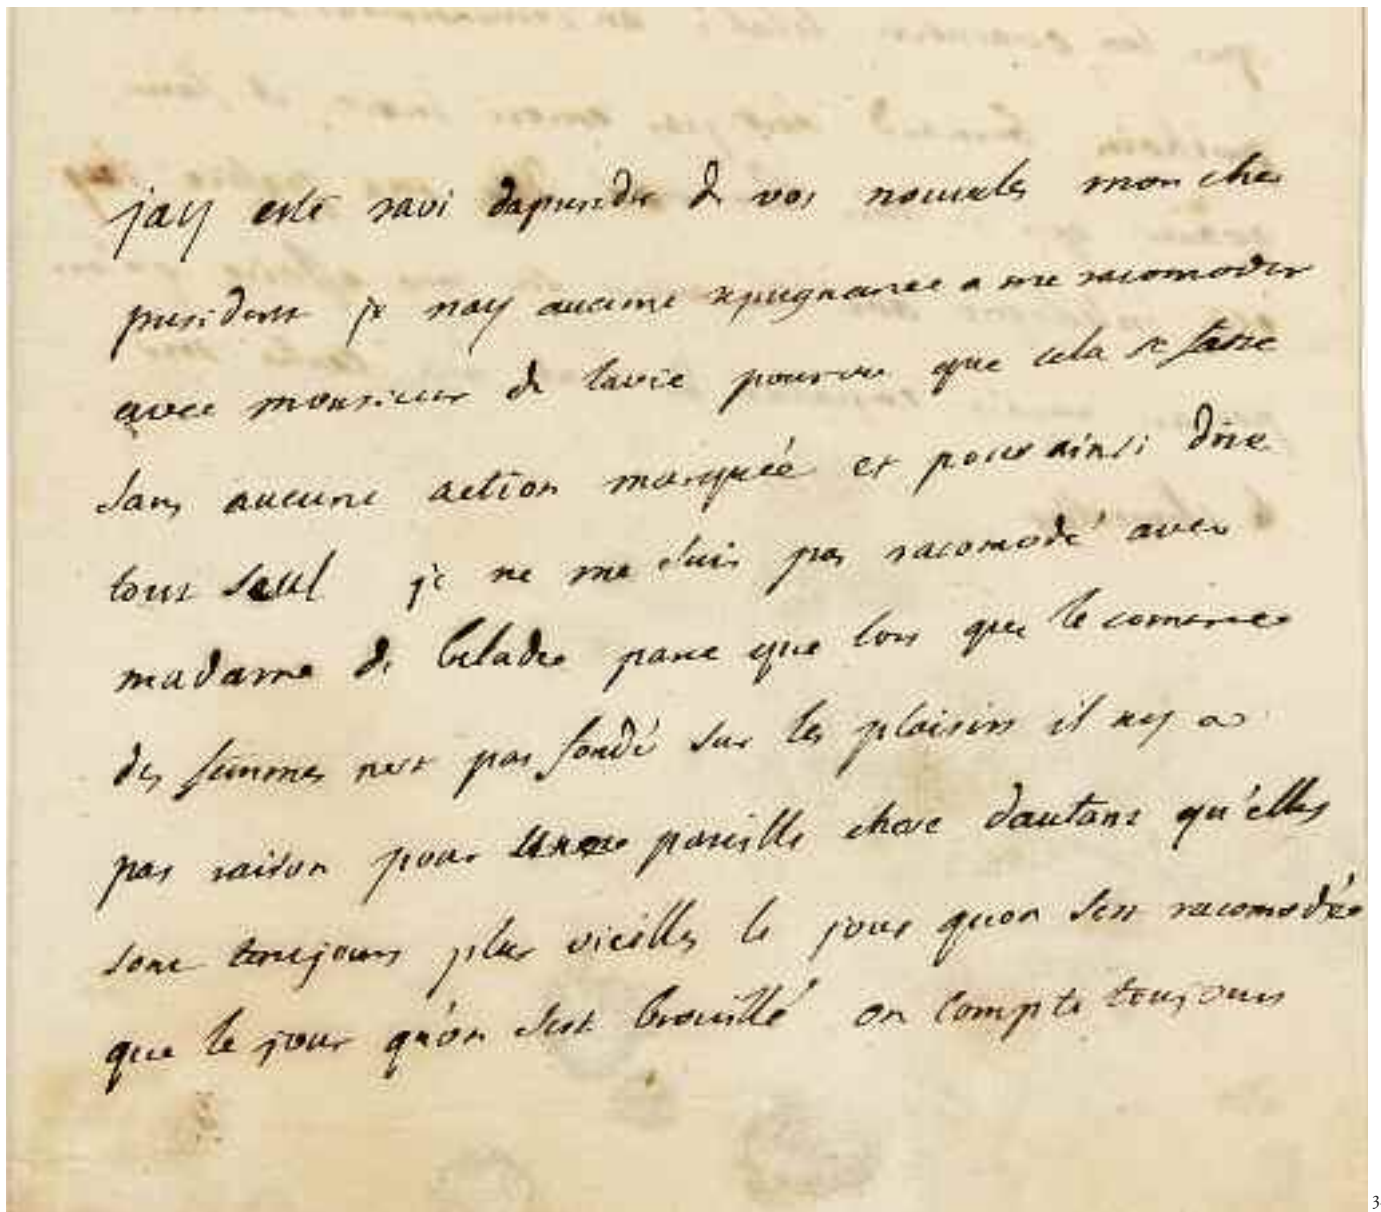 jay esté ravi daprendre de vos nouveles mon cher
president je nay aucune repugnance a me racomoder
avec monsieur de lavie pourvu que cela se fasse
sans aucune action marquée et pour ainsi dire
tout seul je ne me suis pas racomodé avec
madame de pour parce que lors que le comerce
des femmes nest pas fondé sur les plaisirs il ny a
pas raison pour une pareille chose dautant qu'elles
sont toujours plus vieilles le jour quon sest racomodée
que le jour qu'on sest brouillé on compte toujours
3